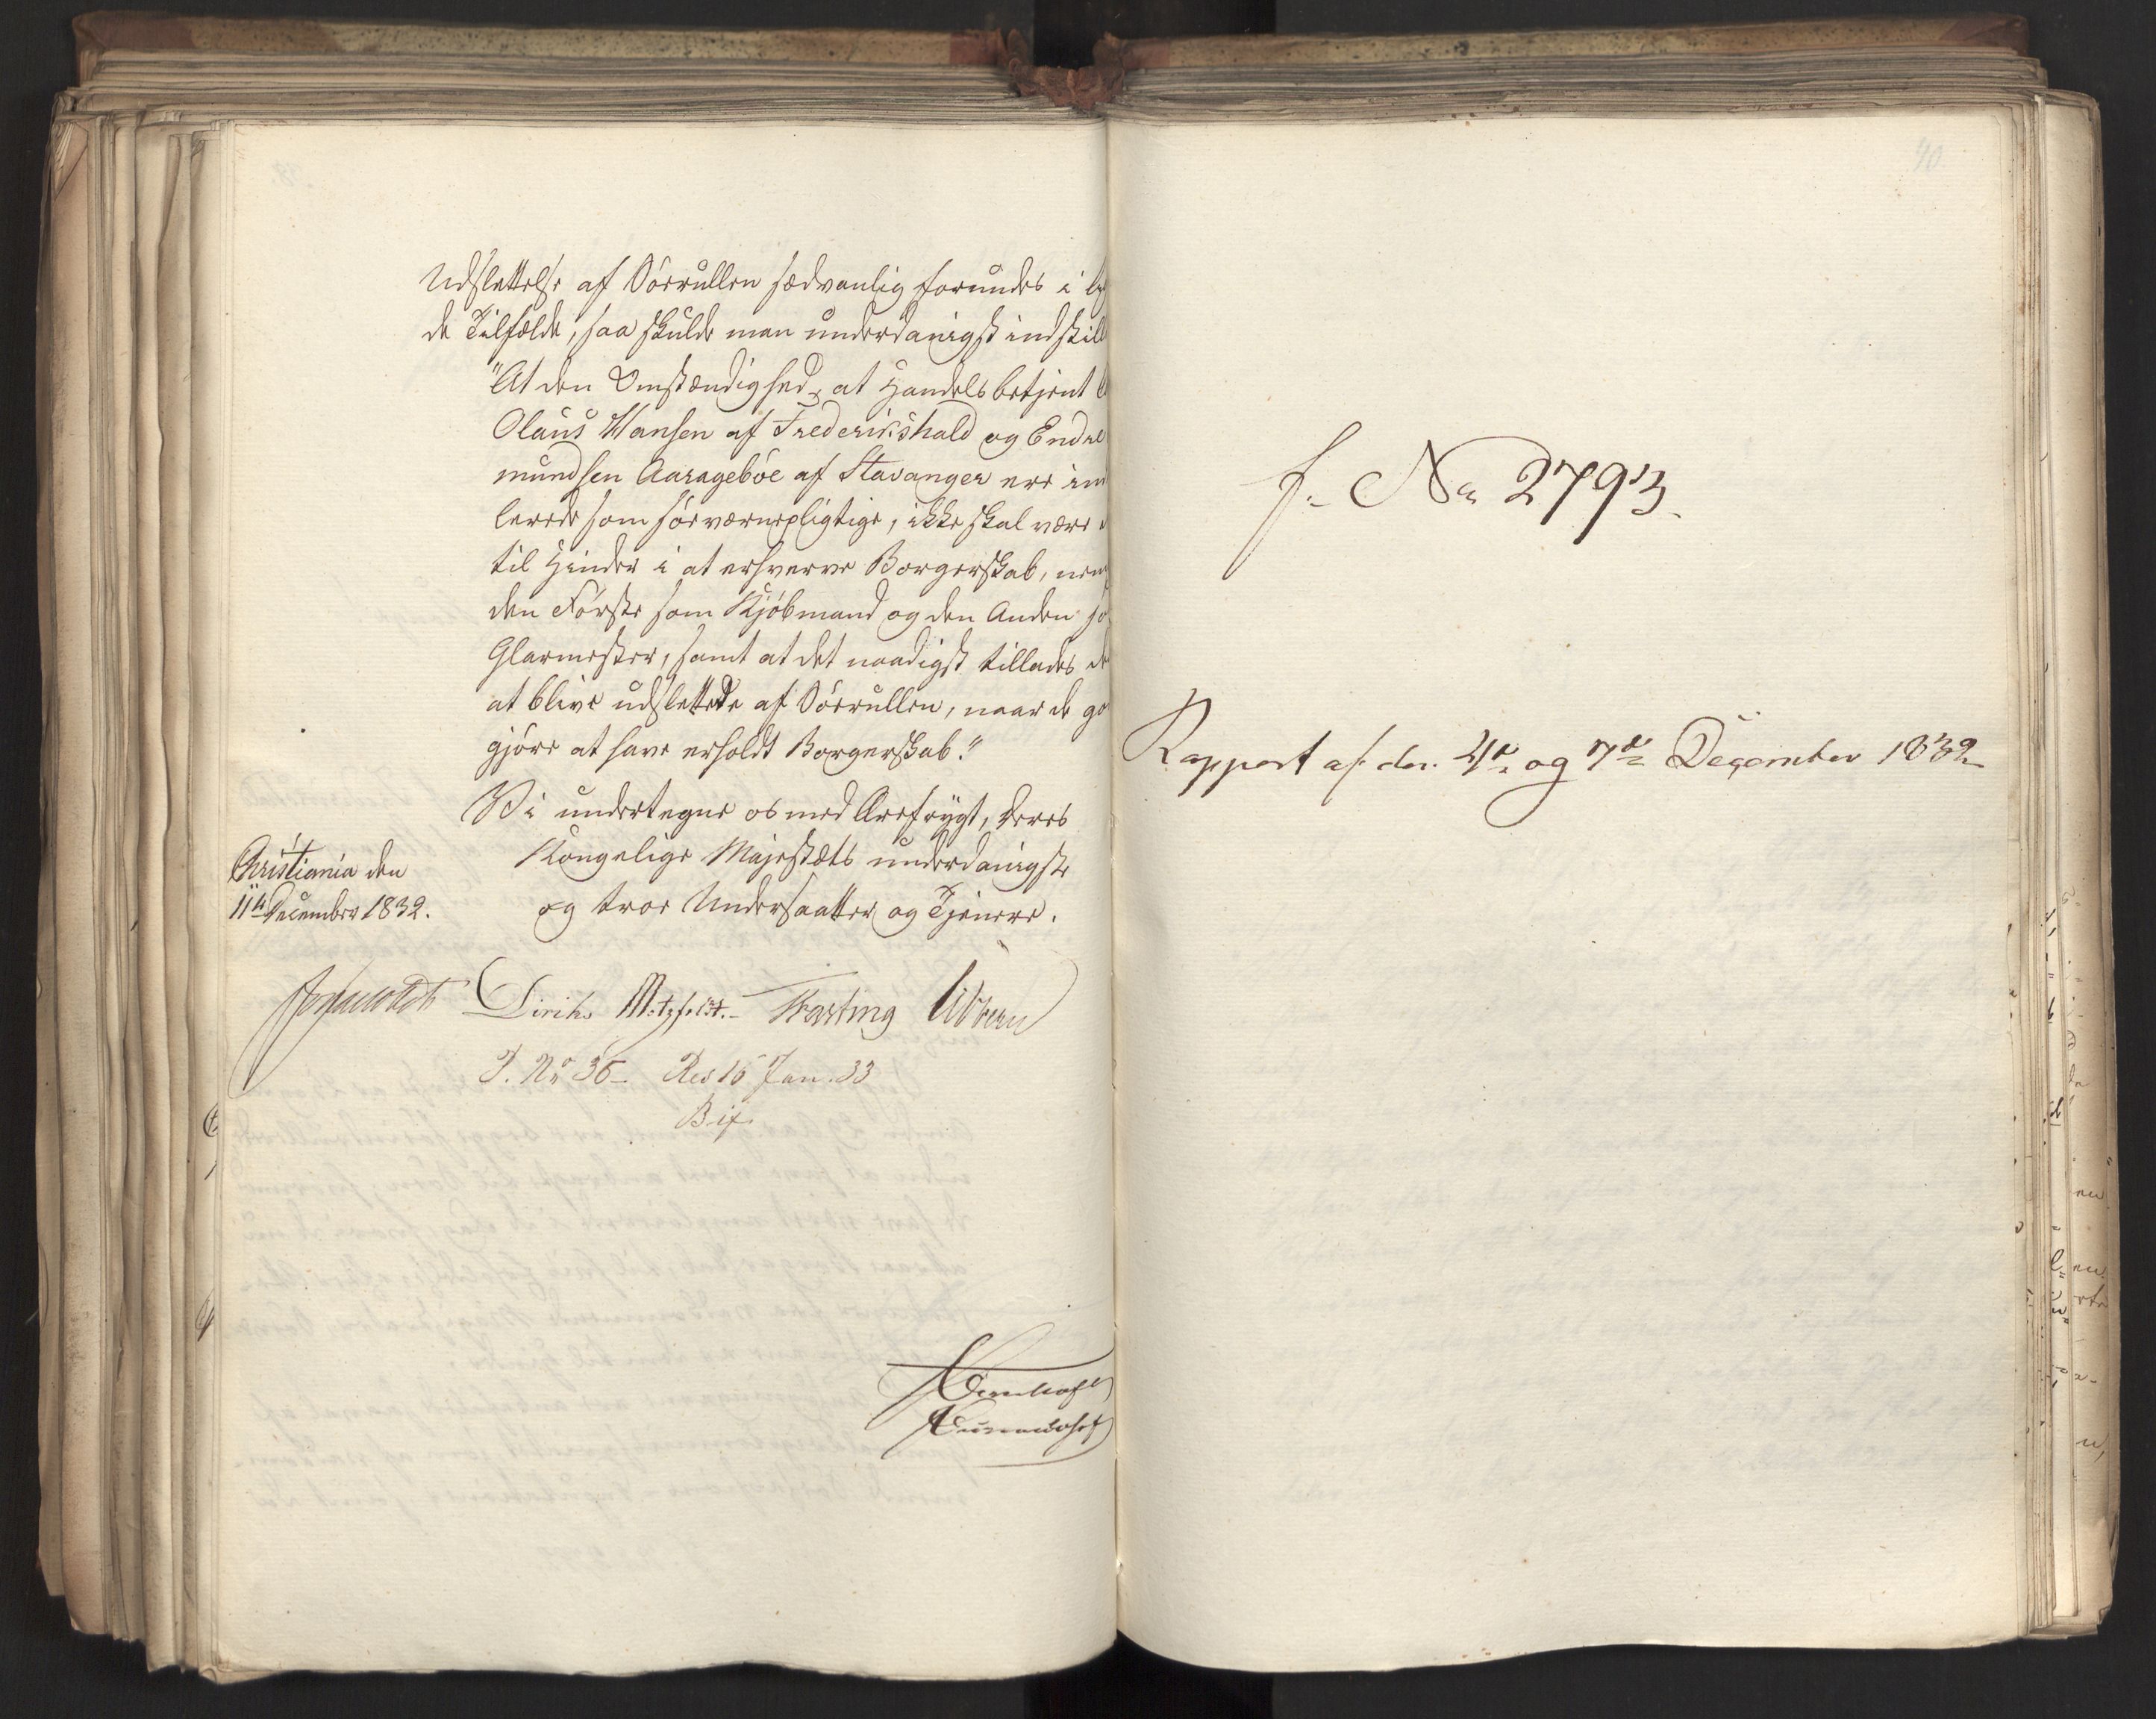 Udslettelse af Söerullen sædvanlig forundes i
de Tilfælde, saa skulde man underdanigst indstill
"At den Omstændighed, at Handelsbetjent
Olaus Hansen af Frederikshald og Endre
mundsen Aaragebøe af Stavanger ere in
lerede som söeværnepligtige, ikke skal være
til Hinder i at erhverve Borgerskab, nem
den Første som Kjöbmand og den Anden so
Glarmester, samt at det naadigst tillades de
at blive udslettede af Söerullen, naar de go
gjöre at have erholdt Borgerskab."
Vi undertegne os med Ærefrygt, Deres
Kongelige Majestæts underdanigste
og troe Undersaatter og Tjenere.
Christiania den
11te December 1832.
Diriks Motzfeldt. Fasting Vibe
J. No 36 Res 16 Jan. 33
Bif.
40
f. No 2793.
Rapport af den 4de og 7de December 1832